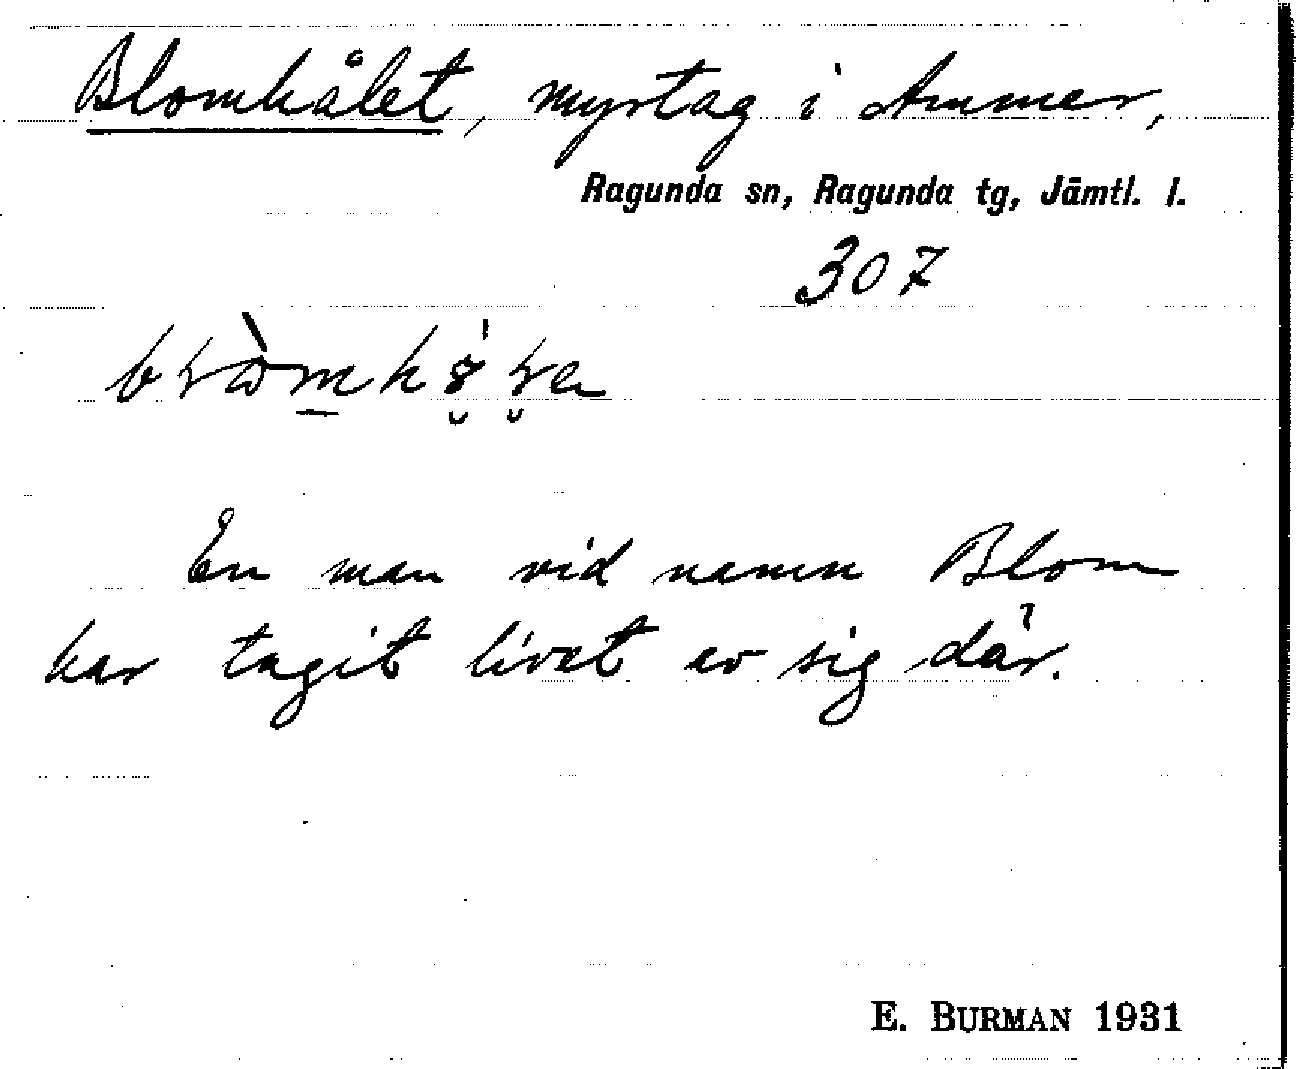 Blomhålet, myrtag i Ammer,
Ragunda sn, Ragunda tg, Jämtl. l.
307
En man vid namn Blom
har tagit livet av sig där.
E. BURMAN 1931